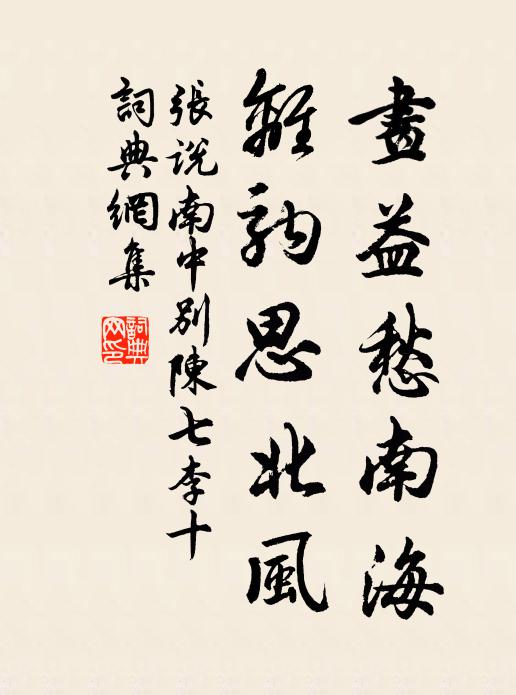 畫益愁南海
離駒思北風
張說南中別陳七李十
詞典網集
詞典
网印